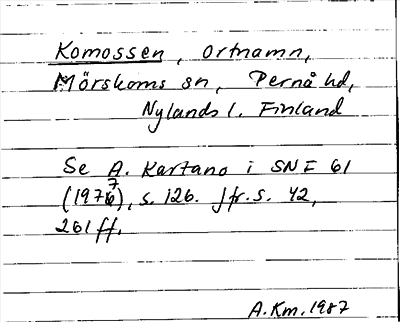 Komossen, ortnamn,
Mörskoms sn, Pernå hd,
Nylands l. Finland
Se A. Kartano i SNF 61
(1977), s. 126. Jfr. s. 42,
261 ff.
A.Km. 1987